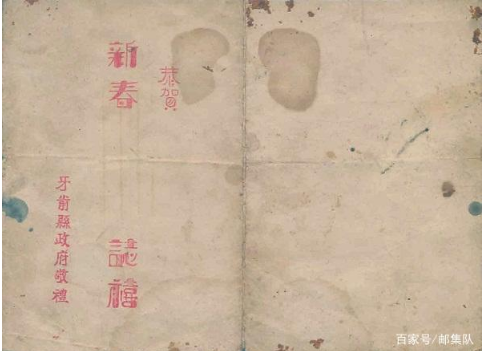 恭賀
新春誌禧
牙前縣政府敬禮
百家号/邮集队